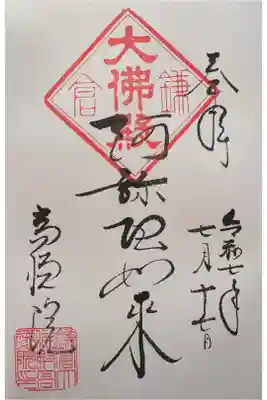 奉拝
令和七年
七月十七日
鎌倉
大佛殿
阿弥陀如来
高徳院